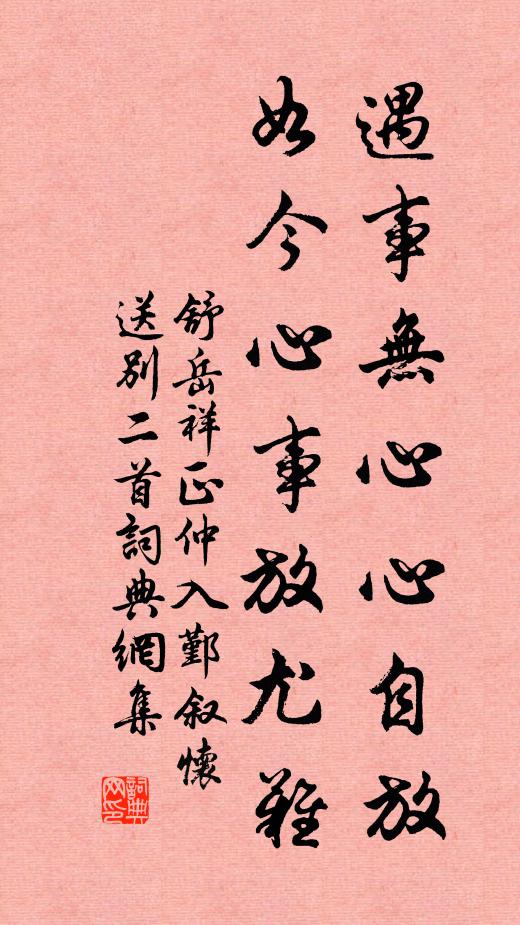 遇事無心心自放
如今心事放尤難
舒岳祥正仲入鄞叙懷
送別二首詞典網集
詞典
网印